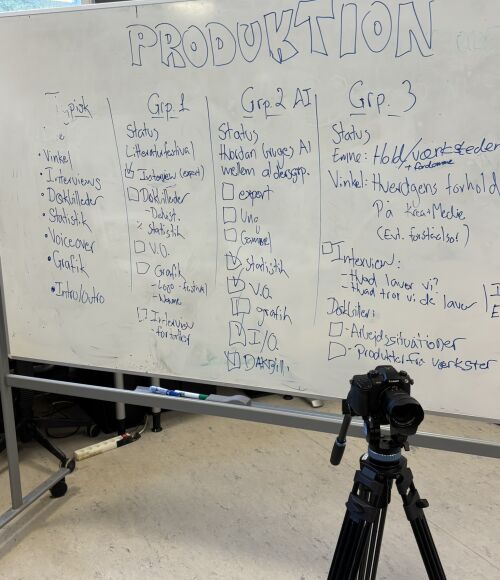 PRODUKTION
Typisk
• Vinkel
• Interviews
• Dækbilleder
• Statistik
• Voiceover
• Grafik
• Intro/outro
Grp. 1
Status
Litteraturfestival
Interview (expert)
Dækbilleder
- Debat.
statistik
V.O.
Grafik
- Logo - festival
- Navne
Interview
- forfatter
Grp. 2 AI
Status
Hvordan bruges AI
mellem aldersgrp.
expert
Ung
Gammel
Statistik
V.O.
grafik
I/O.
DÆKBill.
Grp. 3
Status
Emne: Hold/værksteder
+ fordomme
Vinkel: Hverdagens forhold
På KreaMedie
(Evt. forståelse)
Interview:
- Hvad laver vi?
- Hvad tror vi de laver
Dækbilleder:
- Arbejdssituationer
- Produkter fra værkster